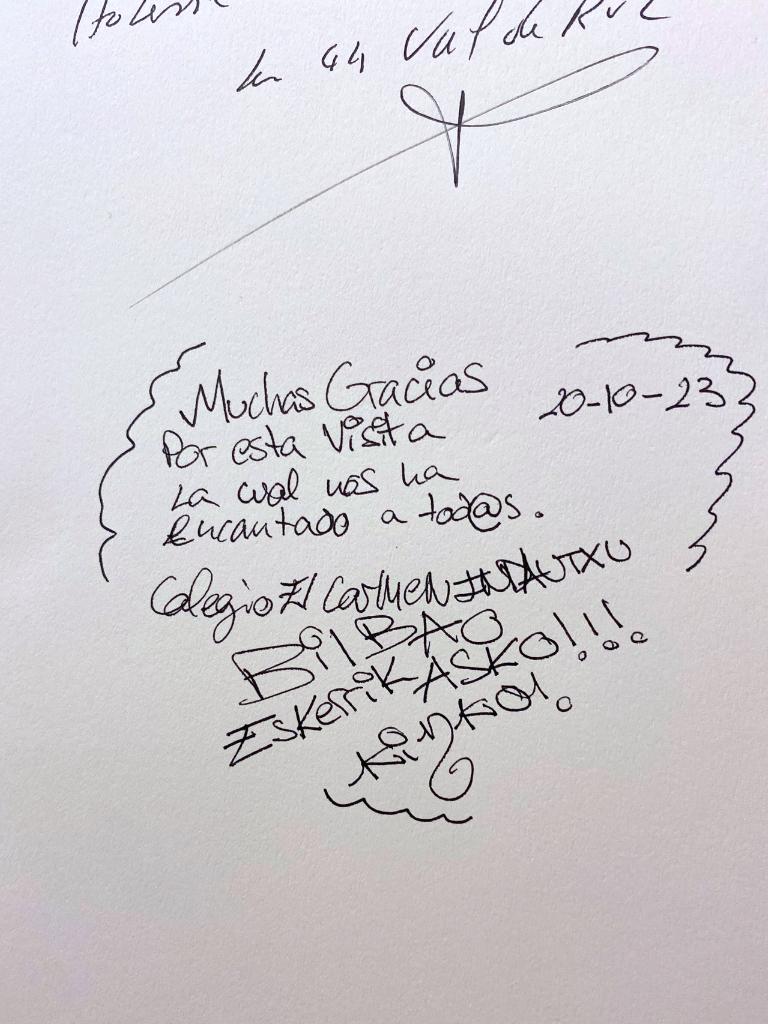 Val de Ruz
Muchas Gracias
20-10-23
Por esta Visita
La cual nos ha
Encantado a tod@s.
Colegio El Carmen INDAUTXU
BilBAO
EsKerriK ASKO!!!